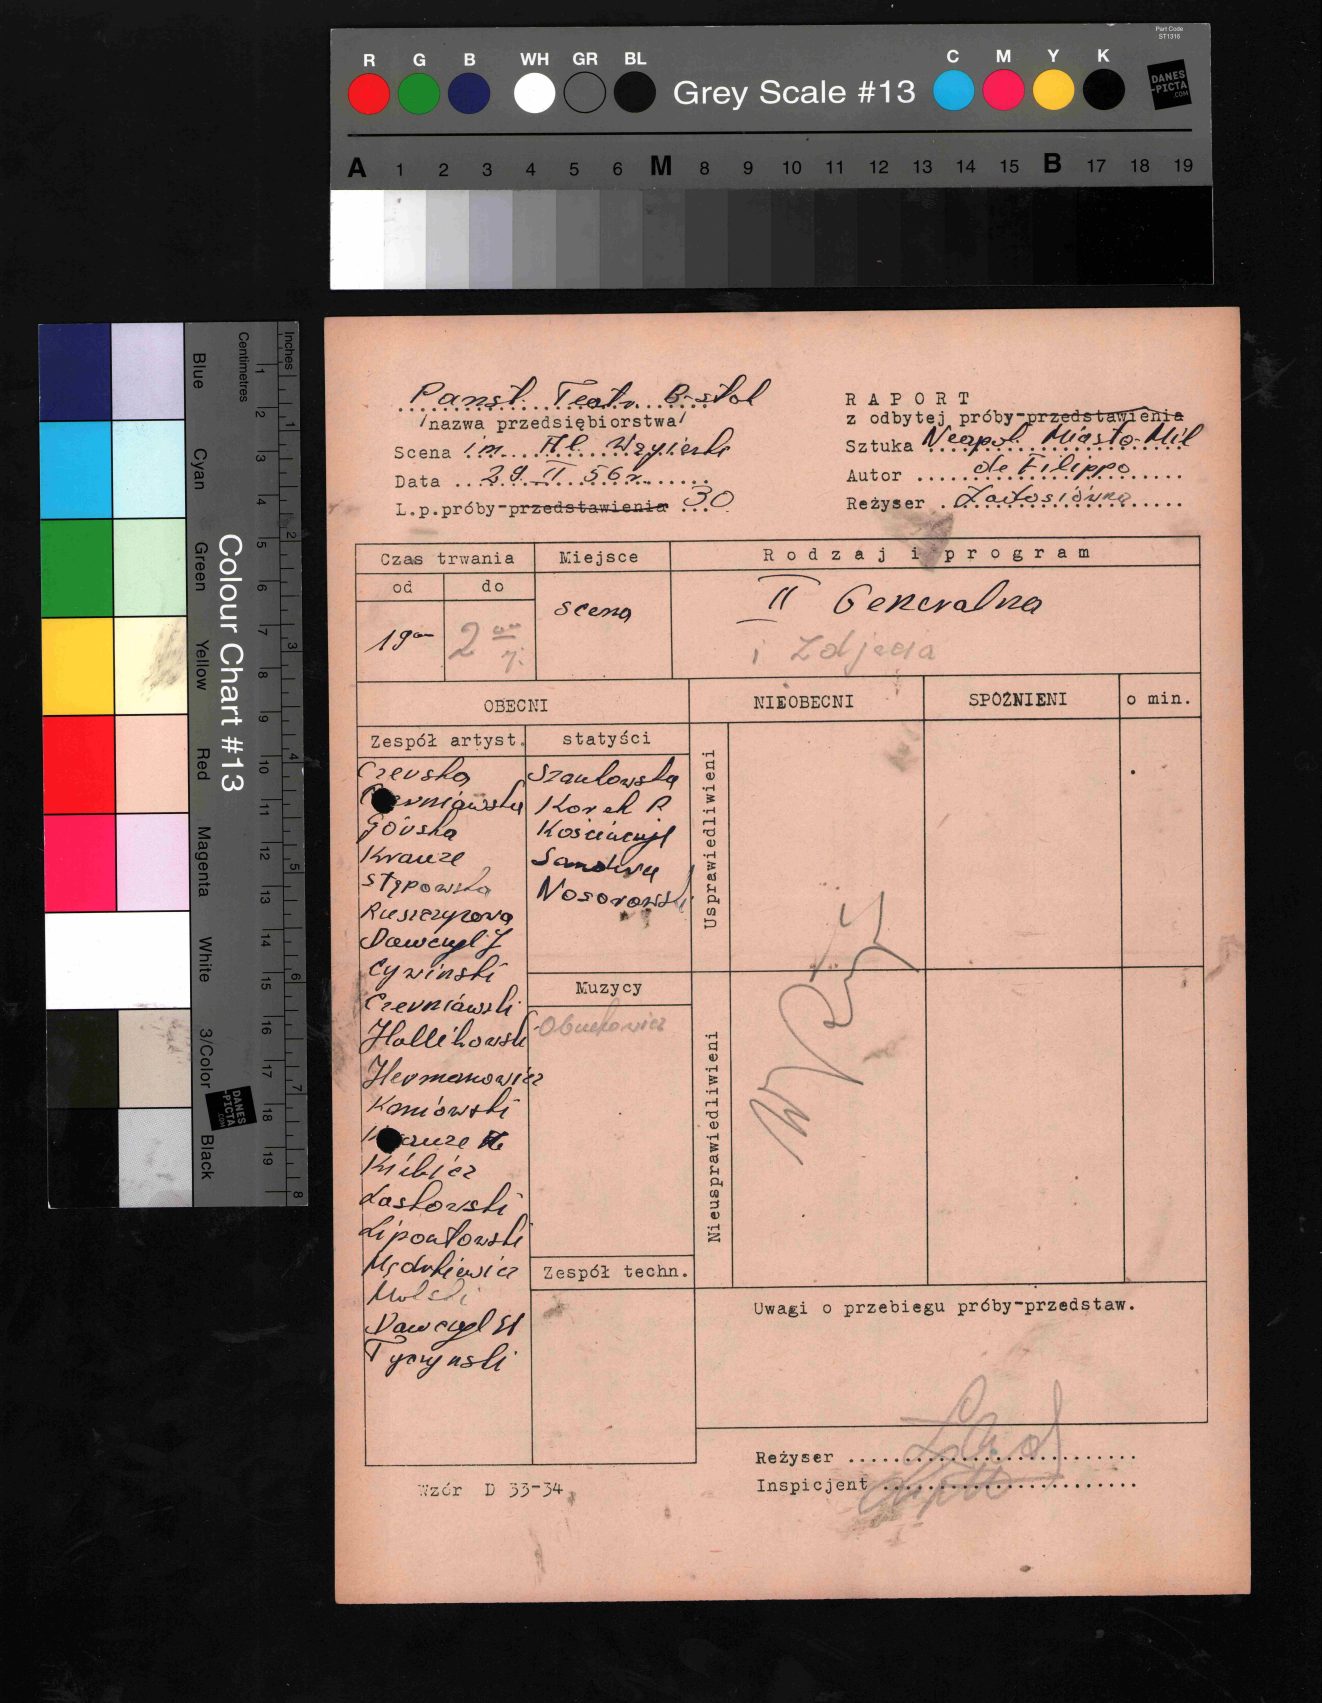 Part Code
ST1316
R G B WH GR BL Grey Scale #13 C M Y K
DANES
-PICTA
.COM
A 1 2 3 4 5 6 M 8 9 10 11 12 13 14 15 B 17 18 19
Colour Chart #13
Blue Cyan Green Yellow Red Magenta White 3/Color Black
Centimetres
1 2 3 4 5 6 7 8 9 10 11 12 13 14 15 16 17 18 19
Inches
1 2 3 4 5 6 7 8
DANES
-PICTA
.COM
Panst. Teatr B-stok
/nazwa przedsiębiorstwa/
Scena im. Al. Węgierki
Data 29 II 56 r.
L.p.próby-przedstawienia 30
RAPORT
z odbytej próby-przedstawienia
Sztuka Neapol Miasto Mil
Autor de Filippo
Reżyser
Czas trwania Miejsce Rodzaj i program
od do
19 2 scena II Generalna
i Zdjęcia
OBECNI NIEOBECNI SPÓŹNIENI o min.
Zespół artyst. statyści
Usprawiedliwieni
Nieusprawiedliwieni
Czerska
Górska
Krauze
Stępowska
Ruszczycowa
Dawczyl J
Cywiński
Czerniawski
Hallikowski
Hermanowicz
Kaniowski
Krauze
Kubicz
Laskowski
Lipowłowski
Mędrkiewicz
Molski
Tyczyński
Szantowska
Korek R
Nosorowski
Muzycy
Obuchowicz
Zespół techn.
Uwagi o przebiegu próby-przedstaw.
Reżyser
Inspicjent
Wzór D 33-34